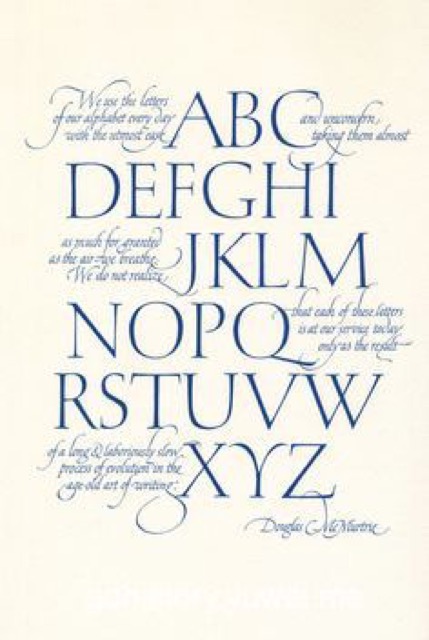 We use the letters
of our alphabet every day
with the utmost ease
ABC
and unconcern,
taking them almost
DEFGHI
as much for granted
as the air we breathe.
We do not realize
JKLM
NOPQ
that each of these letters
is at our service today
only as the result
RSTUVW
of a long & laboriously slow
process of evolution in the
age-old art of writing.
XYZ
Douglas C. McMurtrie